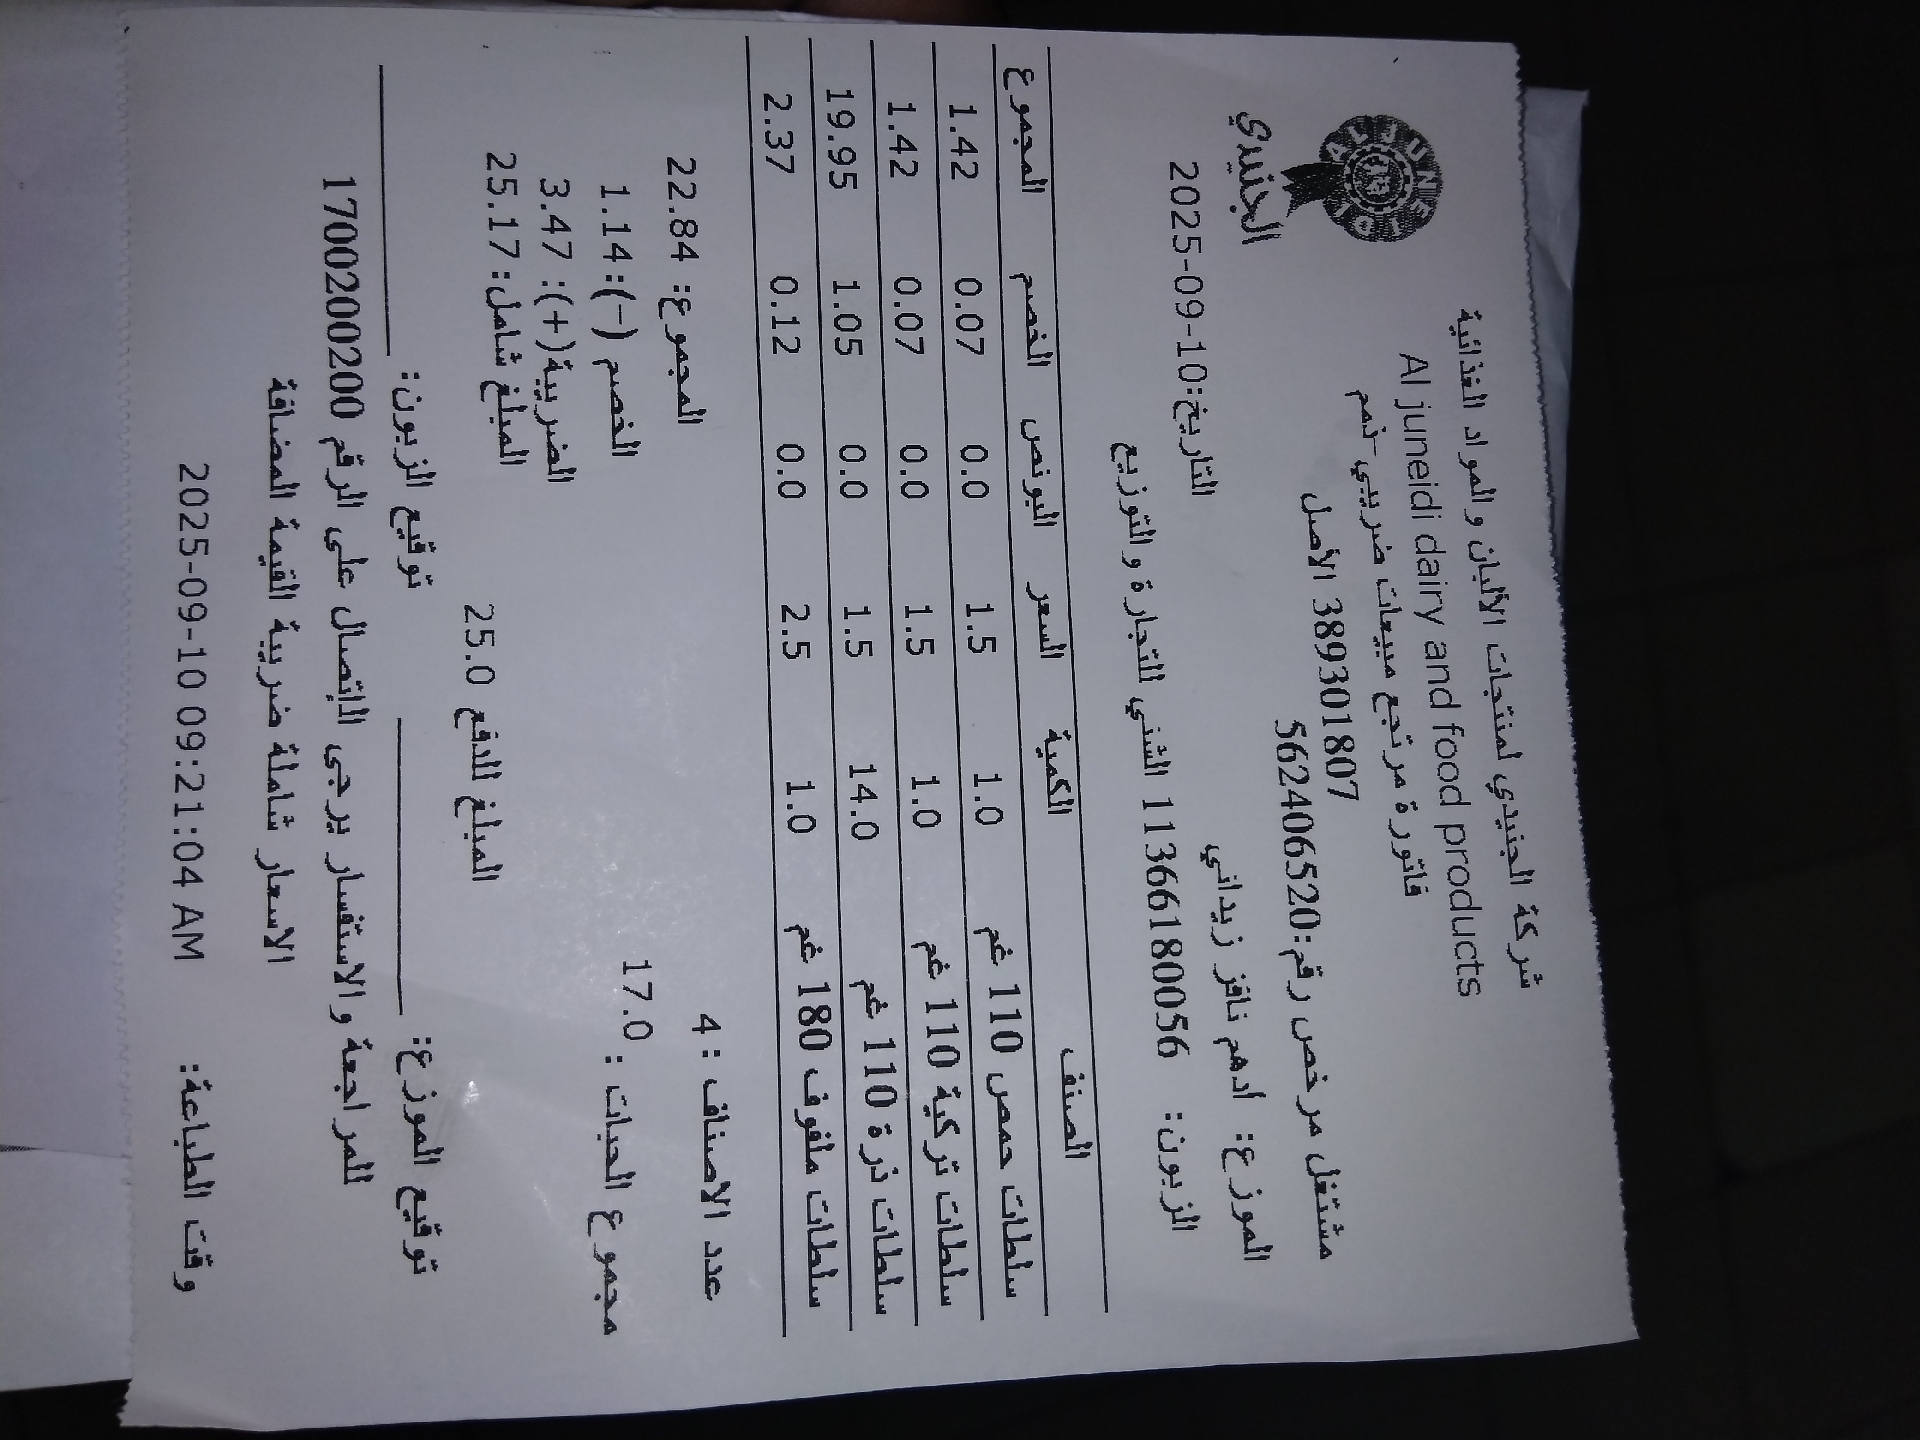 شركة الجنيدي لمنتجات الألبان والمواد الغذائية
Al juneidi dairy and food products
فاتورة مرتجع مبيعات ضريبي-ذمم
389301807 الأصل
مشتغل مرخص رقم:562406520
AL JUNEIDI
الجنيدي
الموزع: أدهم نافز زيداني
التاريخ:2025-09-10
الزبون: 11366180056 الشني للتجارة والتوزيع
الصنف الكمية السعر البونص الخصم المجموع
سلطات حمص 110 غم 1.0 1.5 0.0 0.07 1.42
سلطات تركية 110 غم 1.0 1.5 0.0 0.07 1.42
سلطات ذرة 110 غم 14.0 1.5 0.0 1.05 19.95
سلطات ملفوف 180 غم 1.0 2.5 0.0 0.12 2.37
عدد الاصناف : 4 المجموع: 22.84
مجموع الحبات : 17.0 الخصم (-): 1.14
الضريبة(+): 3.47
المبلغ شامل: 25.17
المبلغ للدفع 25.0
توقيع الموزع: توقيع الزبون:
للمراجعة والاستفسار يرجى الاتصال على الرقم 1700200200
الاسعار شاملة ضريبة القيمة المضافة
وقت الطباعة: 2025-09-10 09:21:04 AM